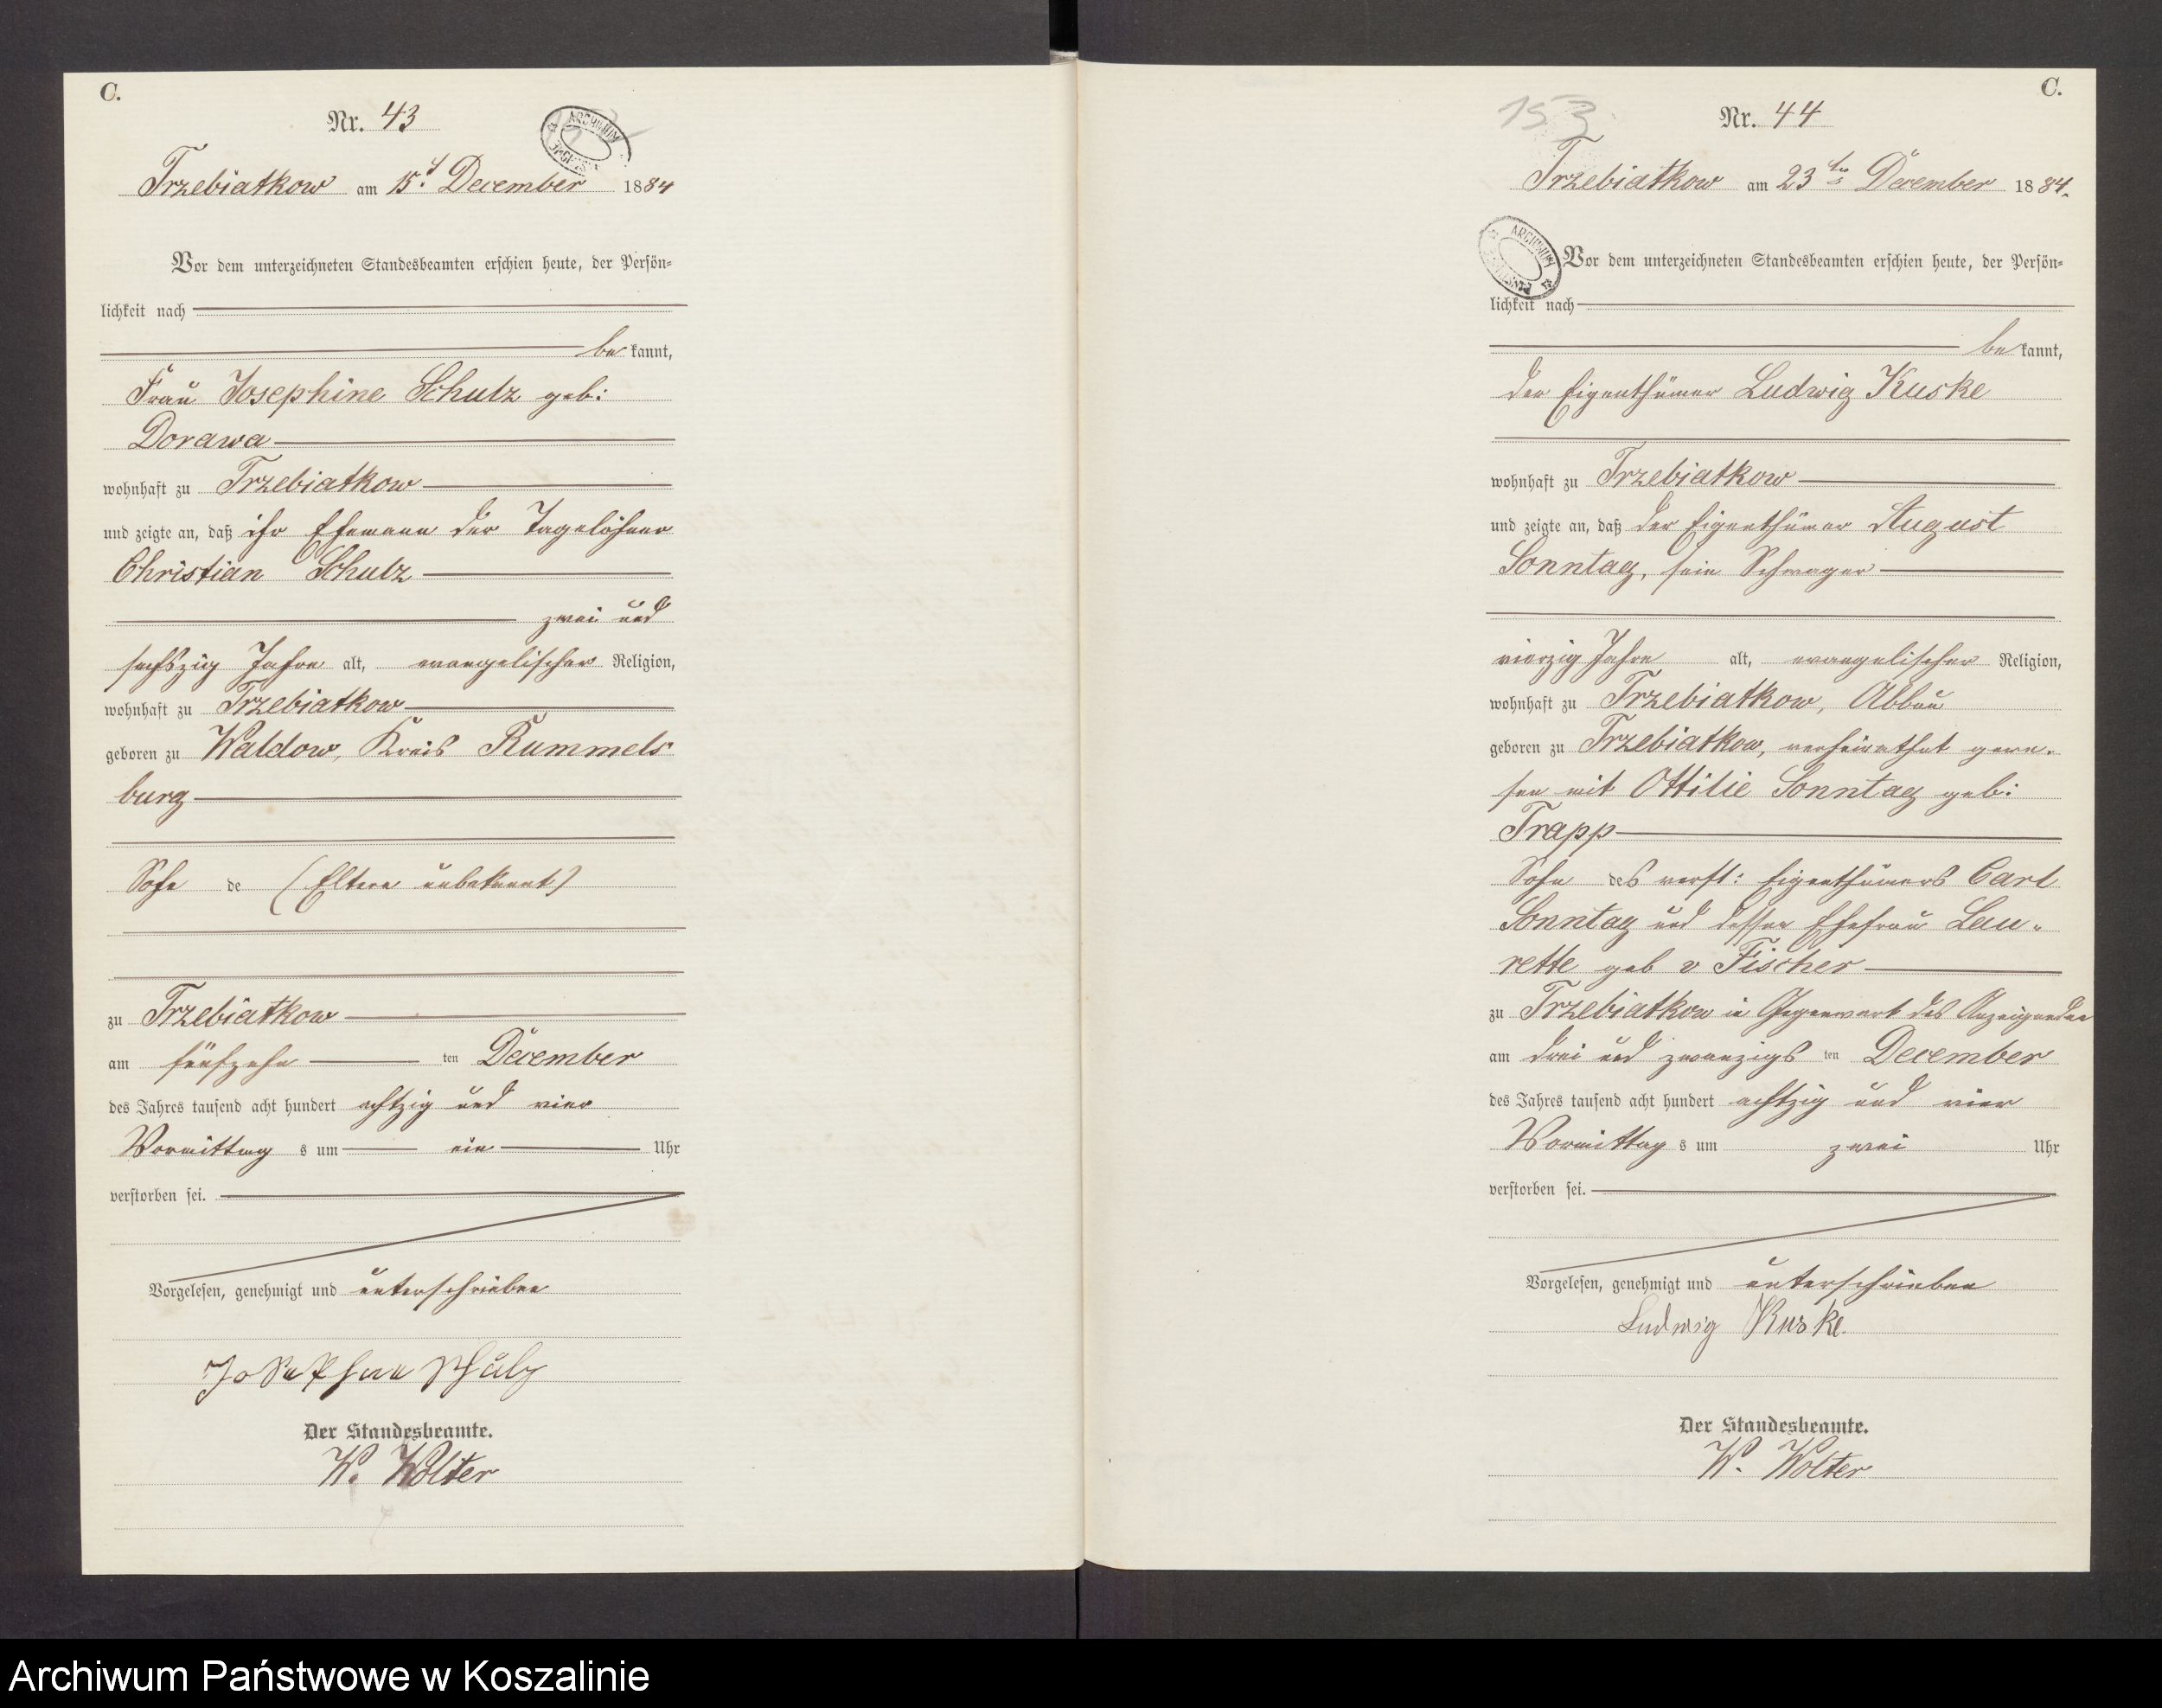 C.
Nr. 43
Trzebiatkow am 15. December 1884
Vor dem unterzeichneten Standesbeamten erschien heute, der Persön-
lichkeit nach
bekannt,
Frau Josephine Schulz geb:
Dorawa
wohnhaft zu Trzebiatkow
und zeigte an, daß ihr Ehemann der Tagelöhner
Christian Schulz
zwei und
sechszig Jahre alt, evangelischer Religion,
wohnhaft zu Trzebiatkow
geboren zu Waldow, Kreis Rummels
burg
Sohn de (Eltern unbekannt)
zu Trzebiatkow
am fünfzehn ten December
des Jahres tausend acht hundert achtzig und vier
Vormittag s um ein Uhr
verstorben sei.
Vorgelesen, genehmigt und unterschrieben
Schulz
Der Standesbeamte.
W. Wolter
C.
153
Nr. 44
Trzebiatkow am 23ten December 1884.
ARCHIWUM
Vor dem unterzeichneten Standesbeamten erschien heute, der Persön-
lichkeit nach
bekannt,
der Eigenthümer Ludwig Kuske
wohnhaft zu Trzebiatkow
und zeigte an, daß der Eigenthümer August
Sonntag, sein Schwager
vierzig Jahre alt, evangelischer Religion,
wohnhaft zu Trzebiatkow, Abbau
geboren zu Trzebiatkow, verheirathet gewe-
sen mit Ottilie Sonntag geb:
Trapp
Sohn des verst: Eigenthümers Carl
Sonntag und dessen Ehefrau Lau-
rette geb v Fischer
zu Trzebiatkow in Gegenwart des Anzeigenden
am drei und zwanzigs ten December
des Jahres tausend acht hundert achtzig und vier
Vormittag s um zwei Uhr
verstorben sei.
Vorgelesen, genehmigt und unterschrieben
Ludwig Kuske.
Der Standesbeamte.
W. Wolter
Archiwum Państwowe w Koszalinie